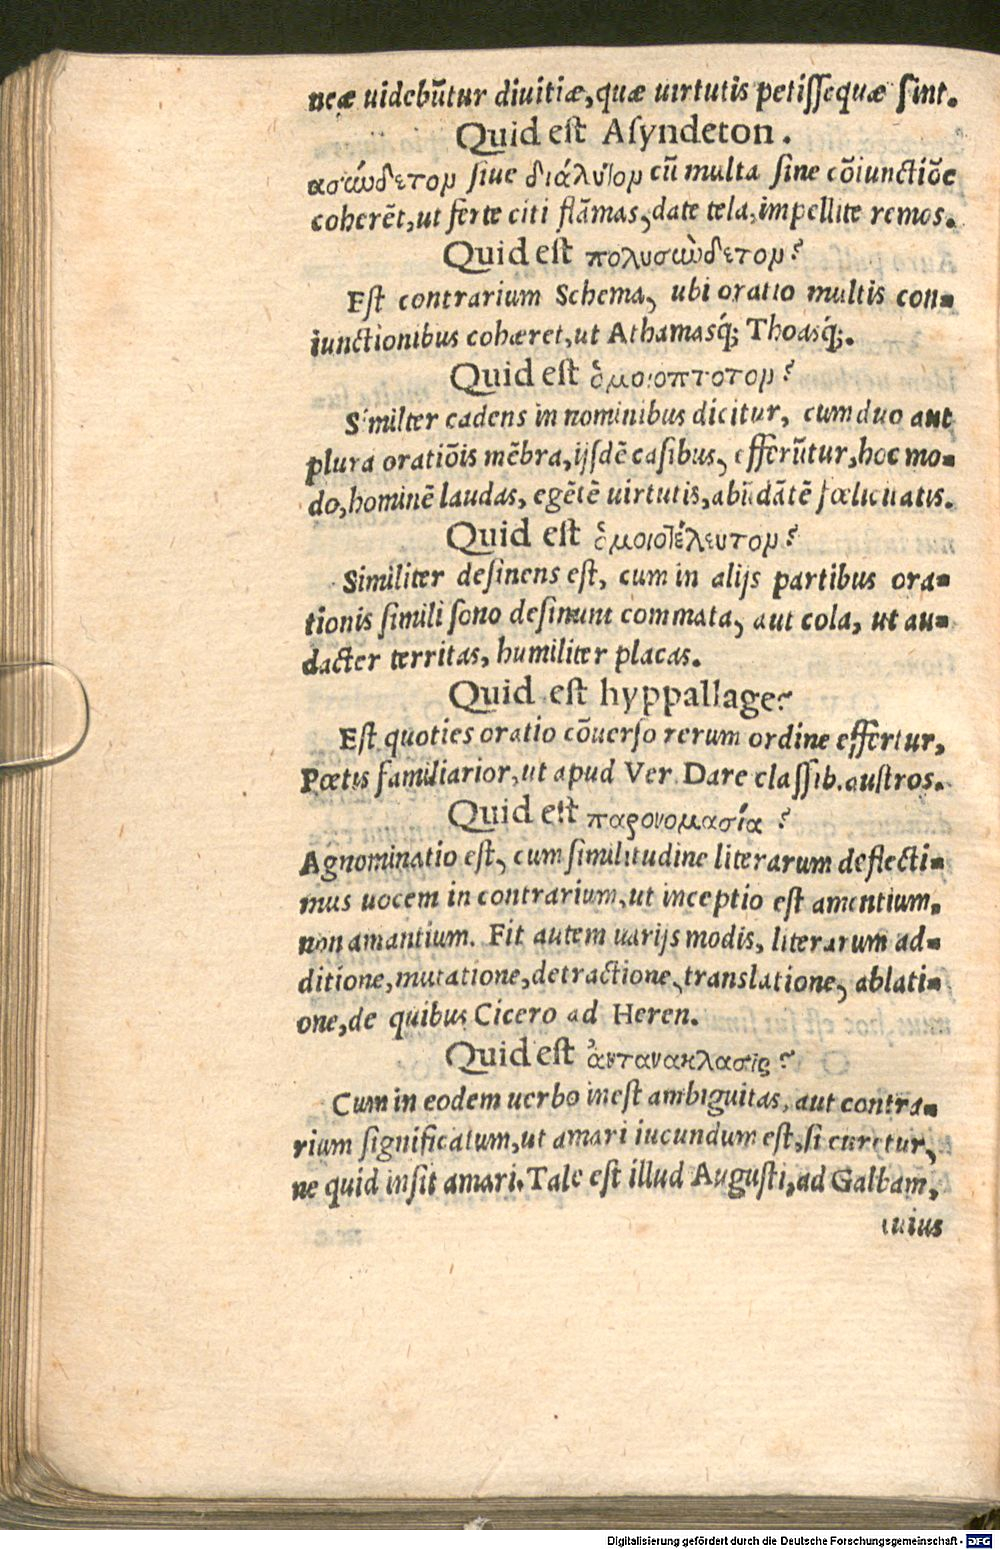 neæ uidebũtur diuitiæ,quæ uirtutis petiſſequæ ſint.
Quid eſt Aſyndeton.
ασύνδετον ſiue διάλυτον cũ multa ſine cõiunctiõe
coherẽt,ut ferte citi flãmas, date tela,impellite remos.
Quid eſt πολυσύνδετον?
Eſt contrarium Schema, ubi oratio multis con-
iunctionibus cohæret,ut Athamasq́; Thoasq́;.
Quid eſt ὁμοιοπτοτον?
Similter cadens in nominibus dicitur, cum duo aut
plura oratiõis mẽbra,ijſdẽ caſibus, efferũtur,hoc mo-
do,hominẽ laudas, egẽtẽ uirtutis,abũdãtẽ fœlicitatis.
Quid eſt ὁμοιοτέλευτον?
Similiter deſinens eſt, cum in alijs partibus ora-
tionis ſimili ſono deſinunt commata, aut cola, ut au-
dacter territas, humiliter placas.
Quid eſt hyppallage?
Eſt quoties oratio cõuerſo rerum ordine effertur,
Poetis familiarior,ut apud Ver. Dare claſſib. auſtros.
Quid eſt παρονομασία?
Agnominatio eſt, cum ſimilitudine literarum deflecti-
mus uocem in contrarium,ut inceptio eſt amentium,
non amantium. Fit autem uarijs modis, literarum ad-
ditione,mutatione,detractione, translatione, ablati-
one,de quibus Cicero ad Heren.
Quid eſt ἀντανακλασις?
Cum in eodem uerbo ineſt ambiguitas, aut contra-
rium ſignificatum,ut amari iucundum eſt,ſi curetur,
ne quid inſit amari. Tale eſt illud Auguſti,ad Galbam,
cuius
Digitalisierung gefördert durch die Deutsche Forschungsgemeinschaft - DFG